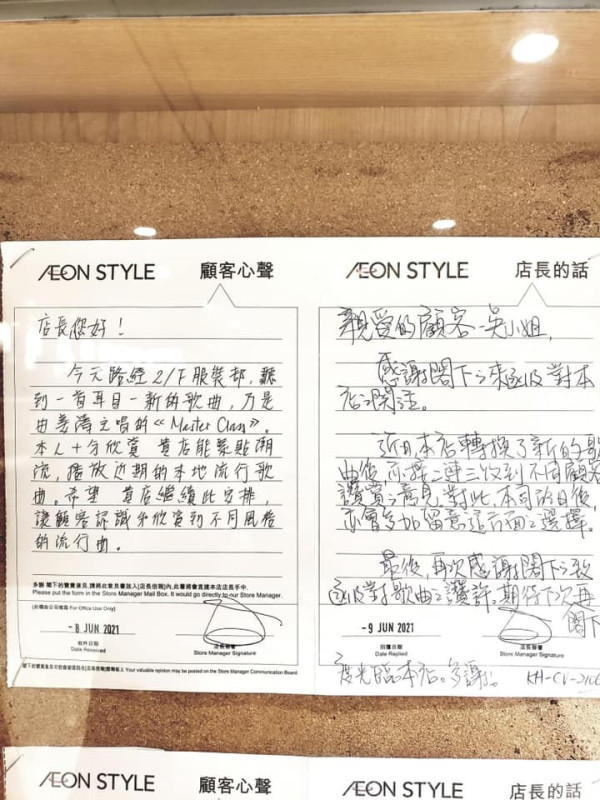 ÆON STYLE 顧客心聲
店長您好！
今天路經2/F服裝部，聽
到一首耳目一新的歌曲，乃是
由姜濤主唱的《Master Class》。
本人十分欣賞 貴店能緊貼潮
流，播放近期的本地流行歌
曲。希望 貴店繼續此安排，
讓顧客認識和欣賞到不同風格
的流行曲。
多謝 閣下的寶貴意見,請將此意見書放入[店長信箱]內,此書將會直達本店店長手中.
Please put the form in the Store Manager Mail Box. It would go directly to our Store Manager.
(此欄由公司填寫 For Office Use Only)
- 8 JUN 2021
收件日期 店長簽署
Date Received Store Manager Signature
Your valuable opinion may be posted on the Store Manager Communication Board
ÆON STYLE 店長的話
親愛的顧客 吳小姐,
感謝閣下之來函及對本
店之關注。
近日,本店轉換了新的歌
曲後,亦接二連三收到不同顧客
讚賞之意見,對此,本司於日後,
亦會多加留意這方面之選擇。
最後,再次感謝閣下之致
函及對歌曲之讚許,期待下次再
閣下
- 9 JUN 2021
回覆日期 店長簽署
Date Replied Store Manager Signature
度光臨本店。多謝!
ÆON STYLE 顧客心聲
ÆON STYLE 店長的話